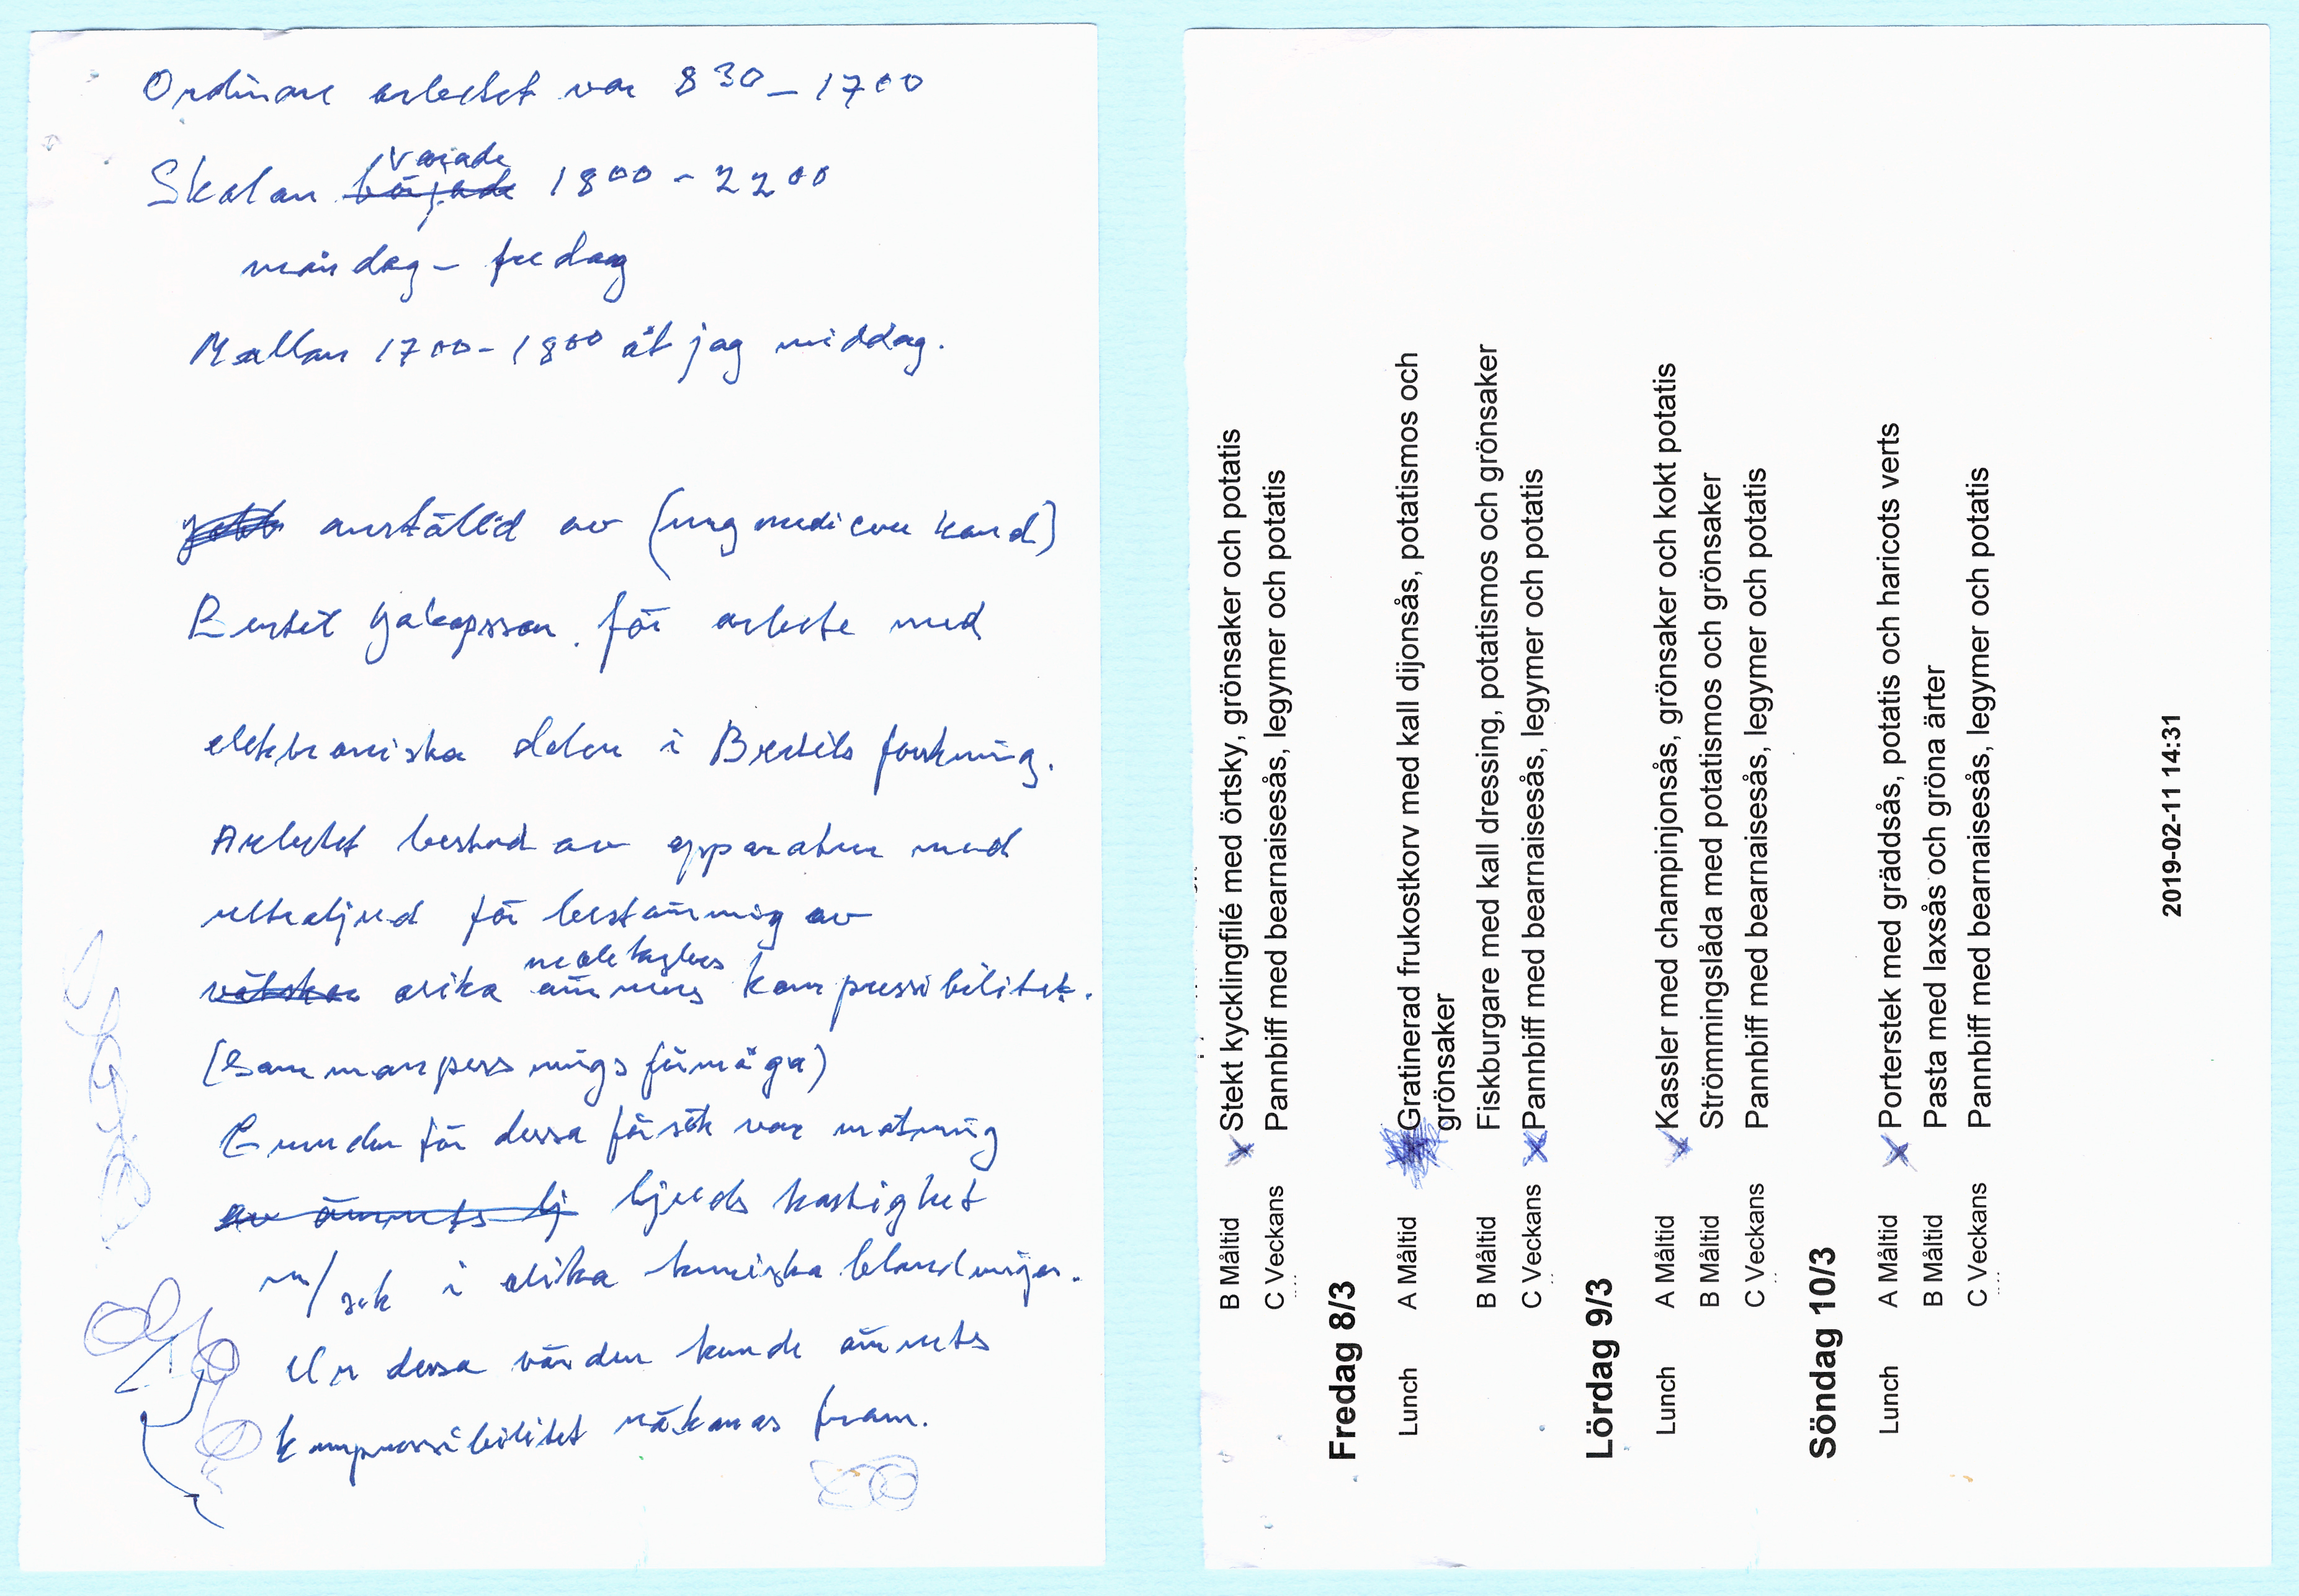 Ordinare arbetet var 8 30 – 17 00
varade
Skolan började 18 00 – 22 00
måndag – fredag
Mellan 17 00 – 18 00 åt jag middag.
anställd av (ung medicine kand)
Bertil Jakopsson. för arbete med
elektroniska delen i Bertils forskning.
Arbetet bestod av apparatur med
ultraljud för bestämning av
molekylers
vätskor olika ämnens kompressibilitet.
(Sammanpressningsförmåga)
Grunden för dessa försök var mätning
av ämnets lj ljuds hastighet
m/sek i olika kemiska blandningar.
Ur dessa värden kunde ämnets
kompressibilitet räknas fram.
B Måltid Stekt kycklingfilé med örtsky, grönsaker och potatis
C Veckans Pannbiff med bearnaisesås, legymer och potatis
Fredag 8/3
Lunch A Måltid Gratinerad frukostkorv med kall dijonsås, potatismos och
grönsaker
B Måltid Fiskburgare med kall dressing, potatismos och grönsaker
C Veckans Pannbiff med bearnaisesås, legymer och potatis
Lördag 9/3
Lunch A Måltid Kassler med champinjonsås, grönsaker och kokt potatis
B Måltid Strömmingslåda med potatismos och grönsaker
C Veckans Pannbiff med bearnaisesås, legymer och potatis
Söndag 10/3
Lunch A Måltid Porterstek med gräddsås, potatis och haricots verts
B Måltid Pasta med laxsås och gröna ärter
C Veckans Pannbiff med bearnaisesås, legymer och potatis
2019-02-11 14:31